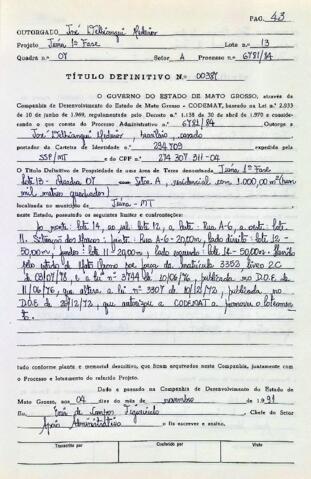 PAG. 43
OUTORGADO José
Projeto Juína 1ª Fase Lote n.º 13
Quadra n.º 07 Setor A Processo n.º 6781/84
TÍTULO DEFINITIVO N.º 00387
O GOVERNO DO ESTADO DE MATO GROSSO, através da
Companhia de Desenvolvimento do Estado de Mato Grosso - CODEMAT, baseado na Lei n.º 2.933
de 10 de junho de 1.969, regulamentada pelo Decreto n.º 1.138 de 30 de abril de 1.970 e conside-
rando o que consta do Processo Administrativo n.º 6781/84 Outorga a
José brasileiro, casado
portador da Carteira de Identidade n.º 234709 expedida pela
SSP/MT e do CPF n.º 274 307 311-04
O Título Definitivo de Propriedade de uma área de Terra denominada Juína 1ª Fase
lote 13 - Quadra 07 Setor A, residencial com 1.000,00 m² (um
mil metros quadrados)
localizada no município de Juína - MT
neste Estado, passando os seguintes limites e confrontações:
Ao norte: lote 14, ao sul: lote 12, a leste: Rua A-6, a oeste: lote
11. frente: Rua A-6 - 20,00m, lado direito: lote 12 -
50,00m, fundos: lote 11 - 20,00m, lado esquerdo: lote 14 - 50,00m
pelo estado de Mato Grosso por força da matrícula 3353 livro 2C
de 03/07/78, e a lei nº 3744 de 10/06/76, publicada no D.O.E de
11/06/76 que altera a lei nº 3307 de 10/12/72, publicada no
D.O.E de 20/12/72, que autoriza a CODEMAT a promover o loteamen
to.
tudo conforme planta e memorial descritivo, que ficam arquivados nesta Companhia, juntamente com
o Processo e loteamento do referido Projeto.
Dado e passado na Companhia de Desenvolvimento do Estado de
Mato Grosso, aos 04 dias do mês de novembro de 1991
Eu, de Campos Figueiredo, Chefe do Setor
Apoio Administrativo o fiz escrever e assino.
Transcrito por Conferido por Visto